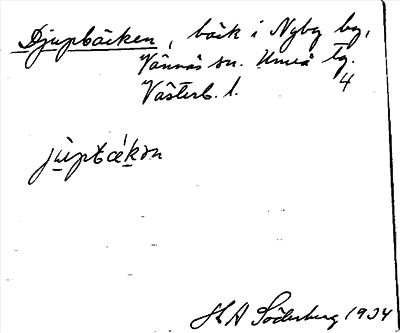 Djupbäcken, bäck i Nyby by,
Vännäs sn. Umeå tg.
Västerb. l. 4
jùptǽkən
H A Söderberg 1934